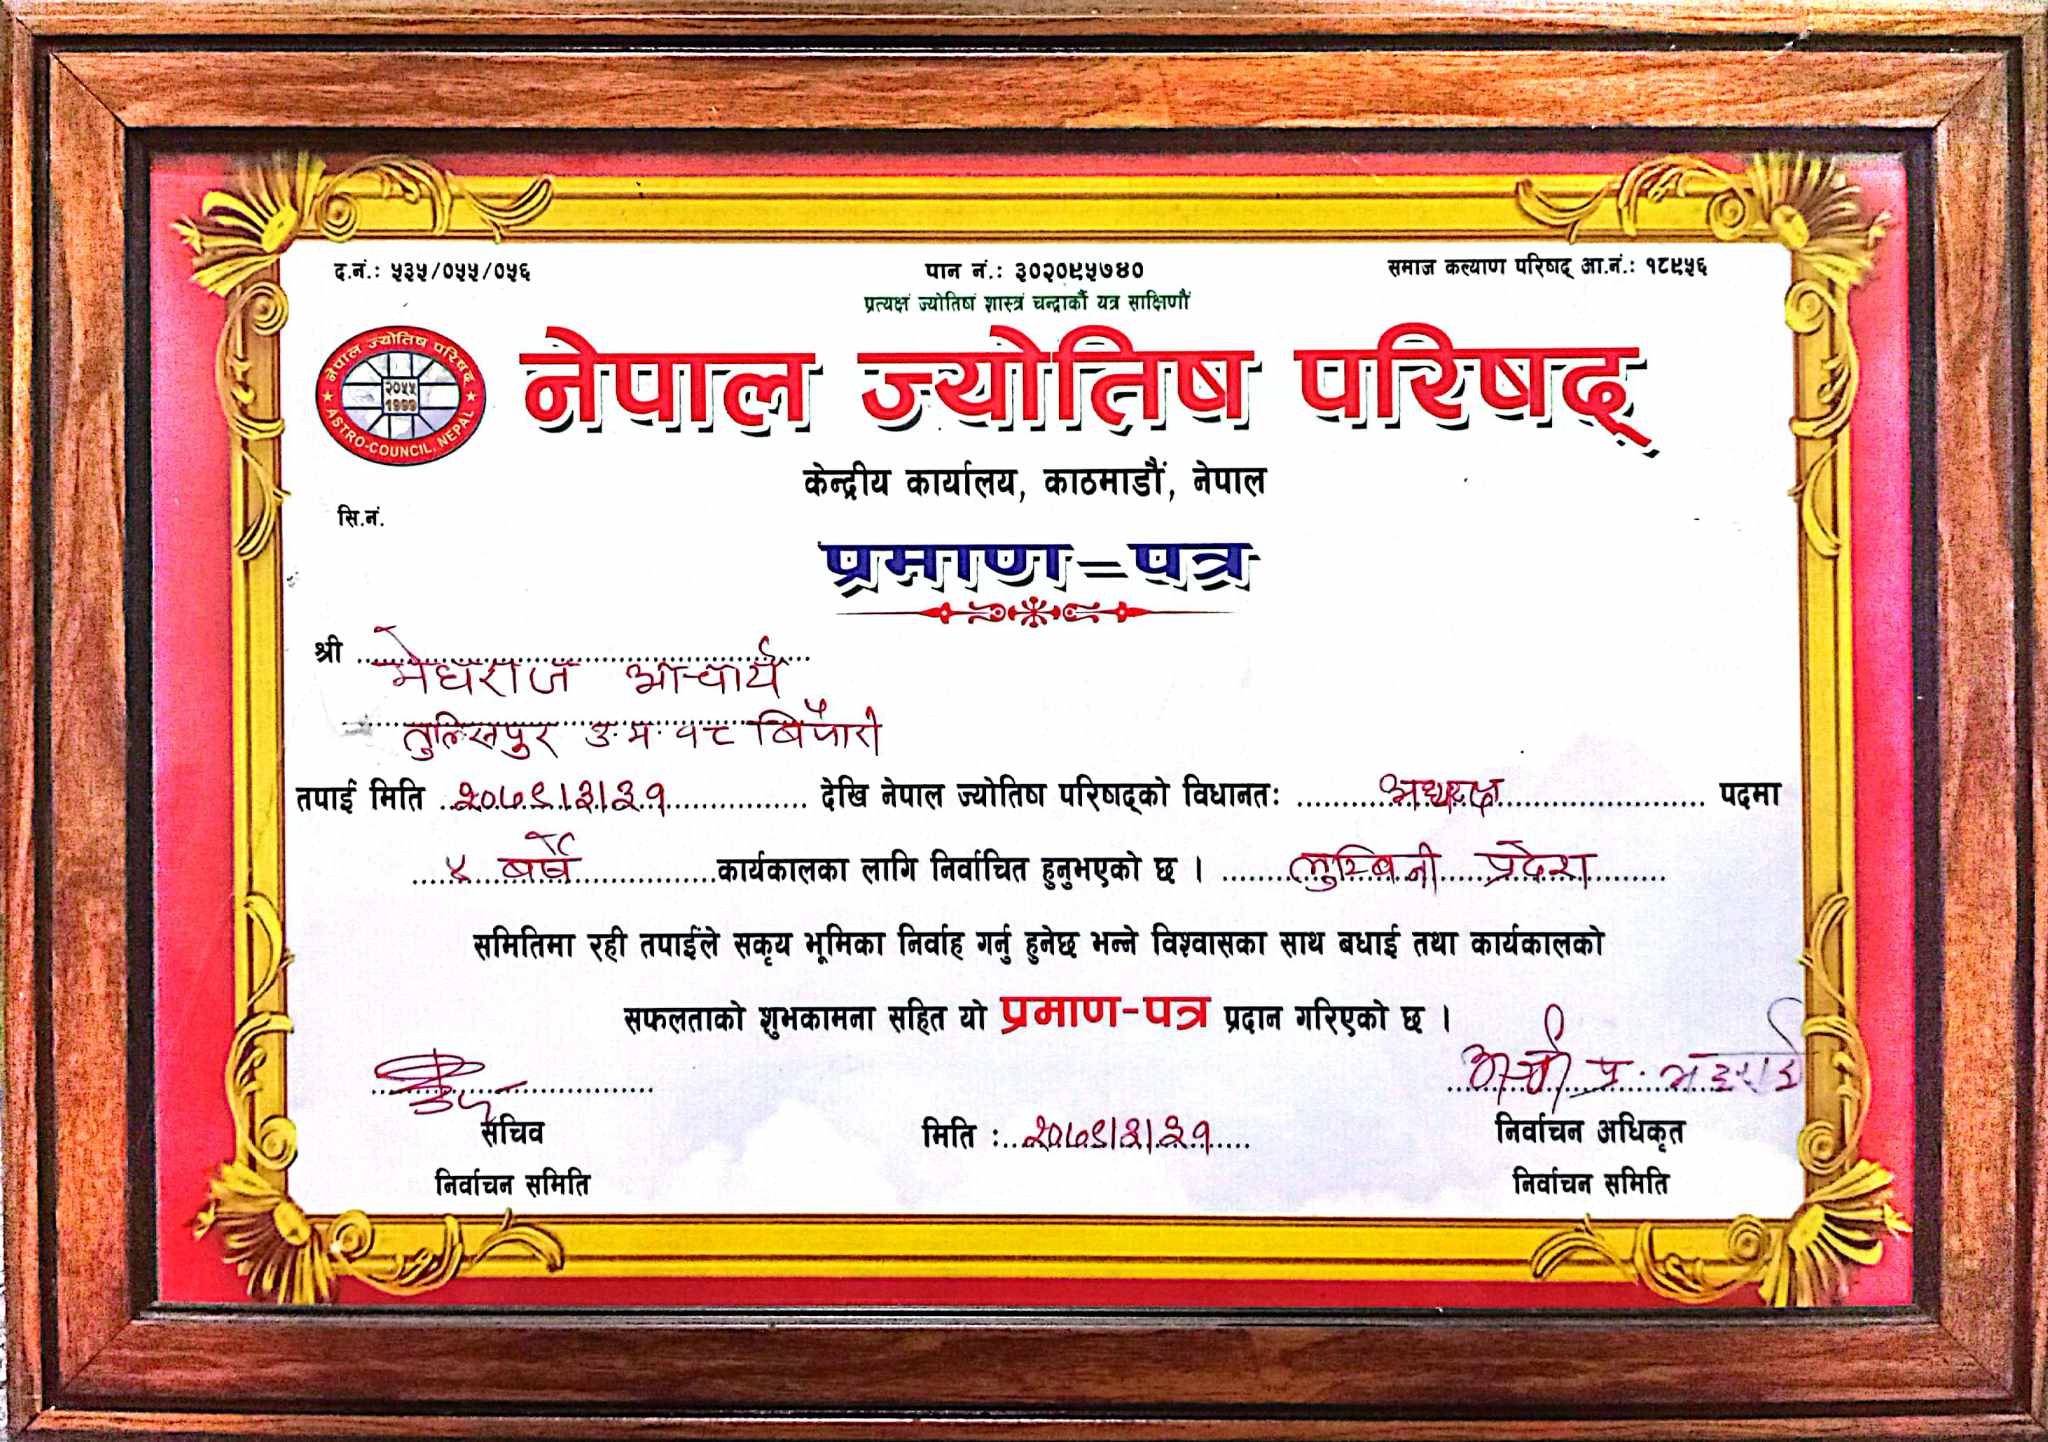 द.नं.: ५३५/०५५/०५६
पान नं.: ३०२०९५७४०
समाज कल्याण परिषद् आ.नं.: १८९५६
प्रत्यक्षं ज्योतिषं शास्त्रं चन्द्रार्कौ यत्र साक्षिणौ
नेपाल ज्योतिष परिषद्
नेपाल ज्योतिष परिषद्
२०५५
1999
ASTRO-COUNCIL, NEPAL
केन्द्रीय कार्यालय, काठमाडौं, नेपाल
सि.नं.
प्रमाण-पत्र
श्री मेघराज आचार्य
तुल्सिपुर उ.म.१८
तपाई मिति २०७९।२।२१ देखि नेपाल ज्योतिष परिषद्को विधानतः अध्यक्ष पदमा
४ बर्षे कार्यकालका लागि निर्वाचित हुनुभएको छ । लुम्बिनी प्रदेश
समितिमा रही तपाईले सकृय भूमिका निर्वाह गर्नु हुनेछ भन्ने विश्वासका साथ बधाई तथा कार्यकालको
सफलताको शुभकामना सहित यो प्रमाण-पत्र प्रदान गरिएको छ ।
सचिव
निर्वाचन समिति
मिति : २०७९।२।२१
निर्वाचन अधिकृत
निर्वाचन समिति